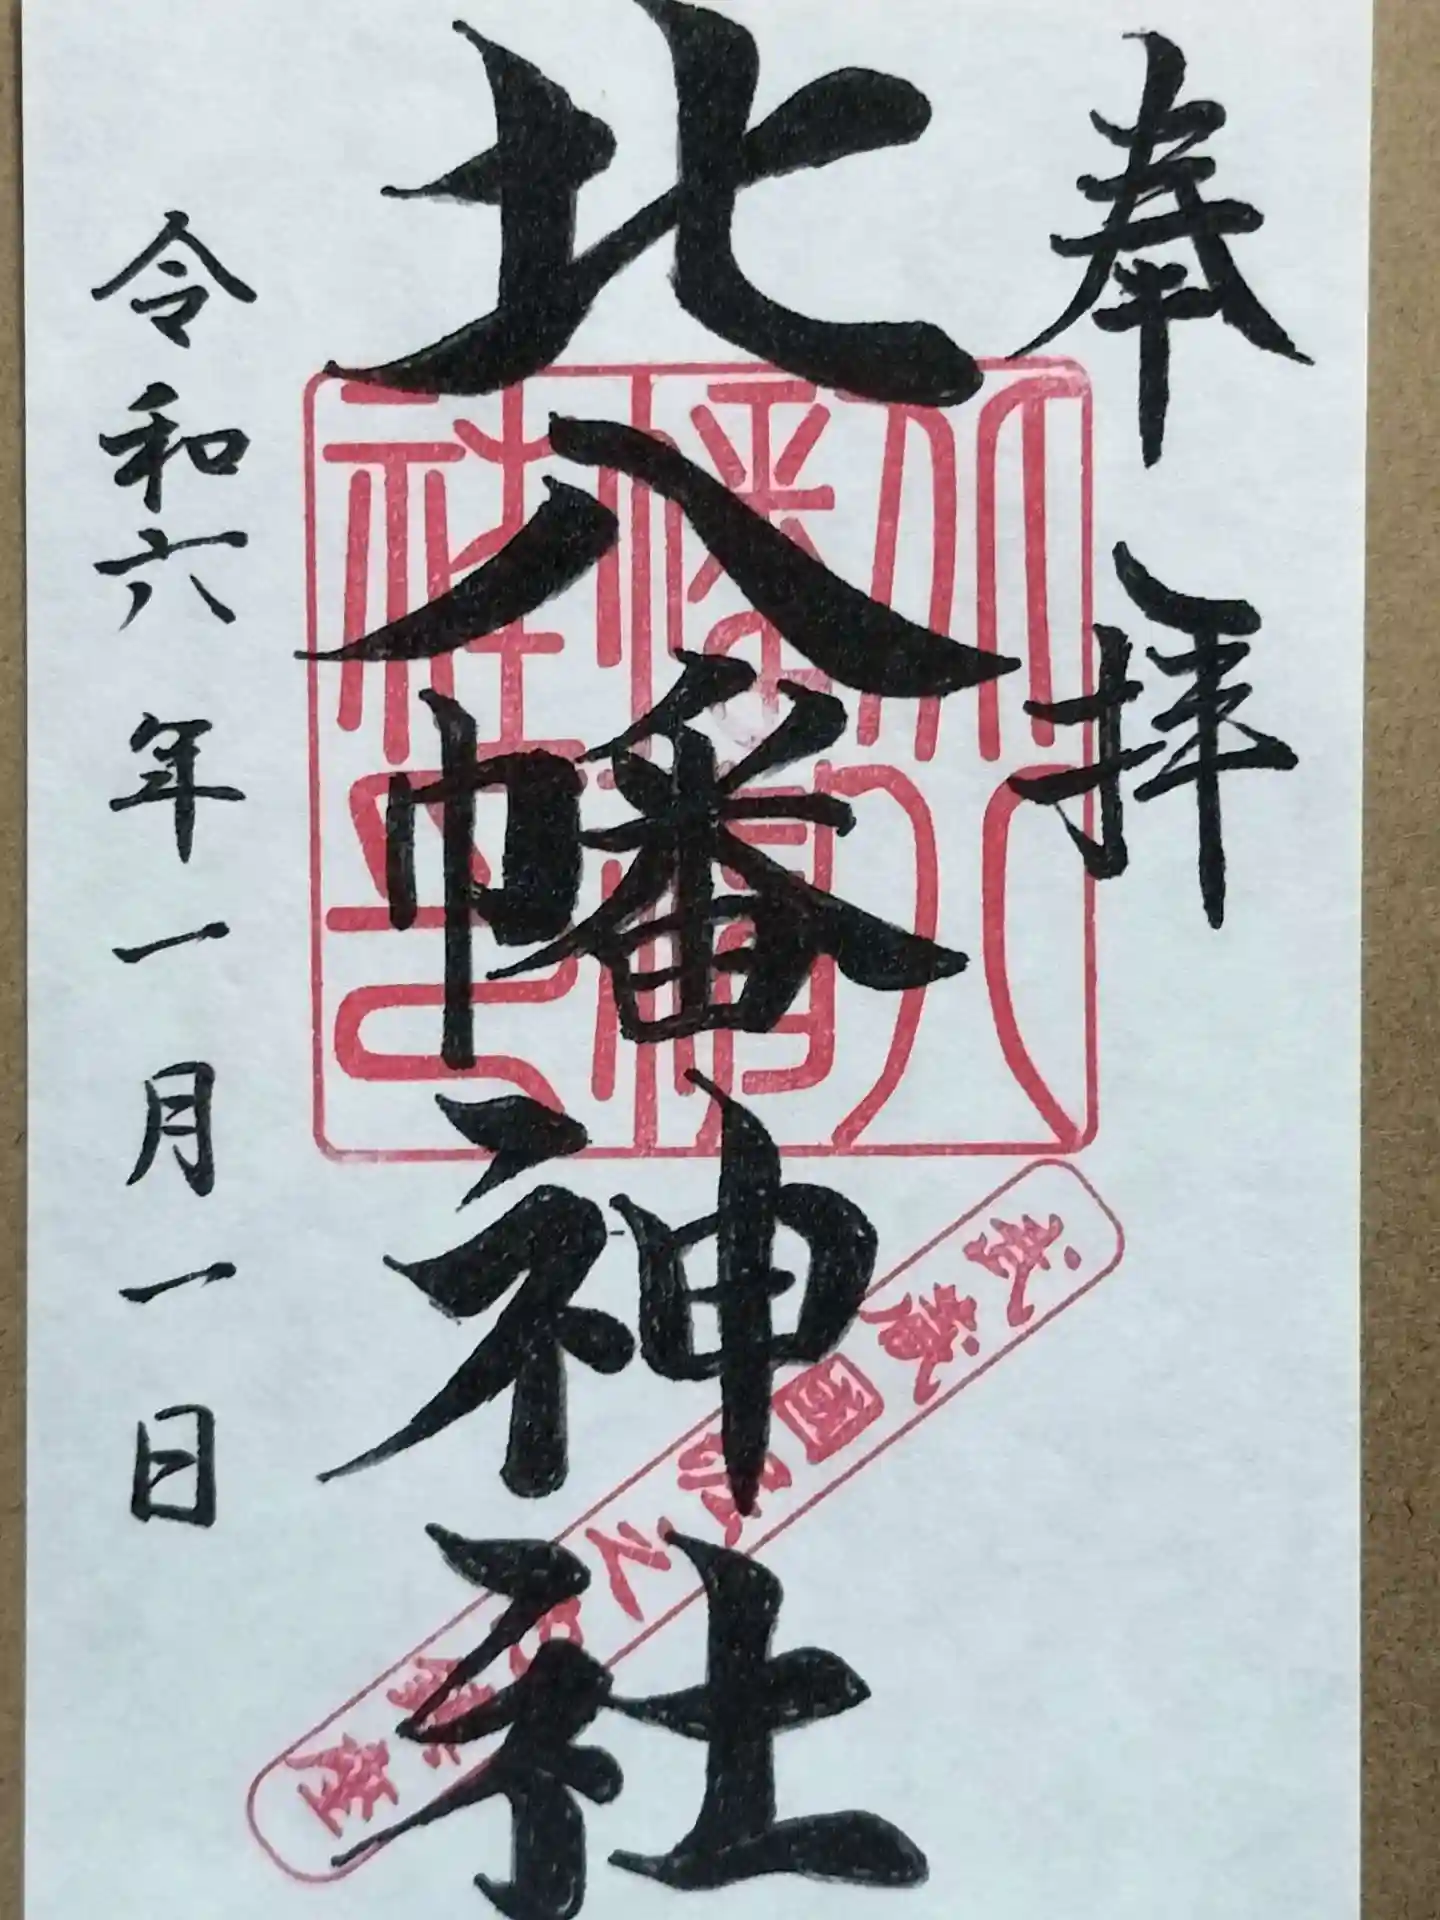 奉拝
北八幡神社
北八幡神社之印
令和六年一月一日